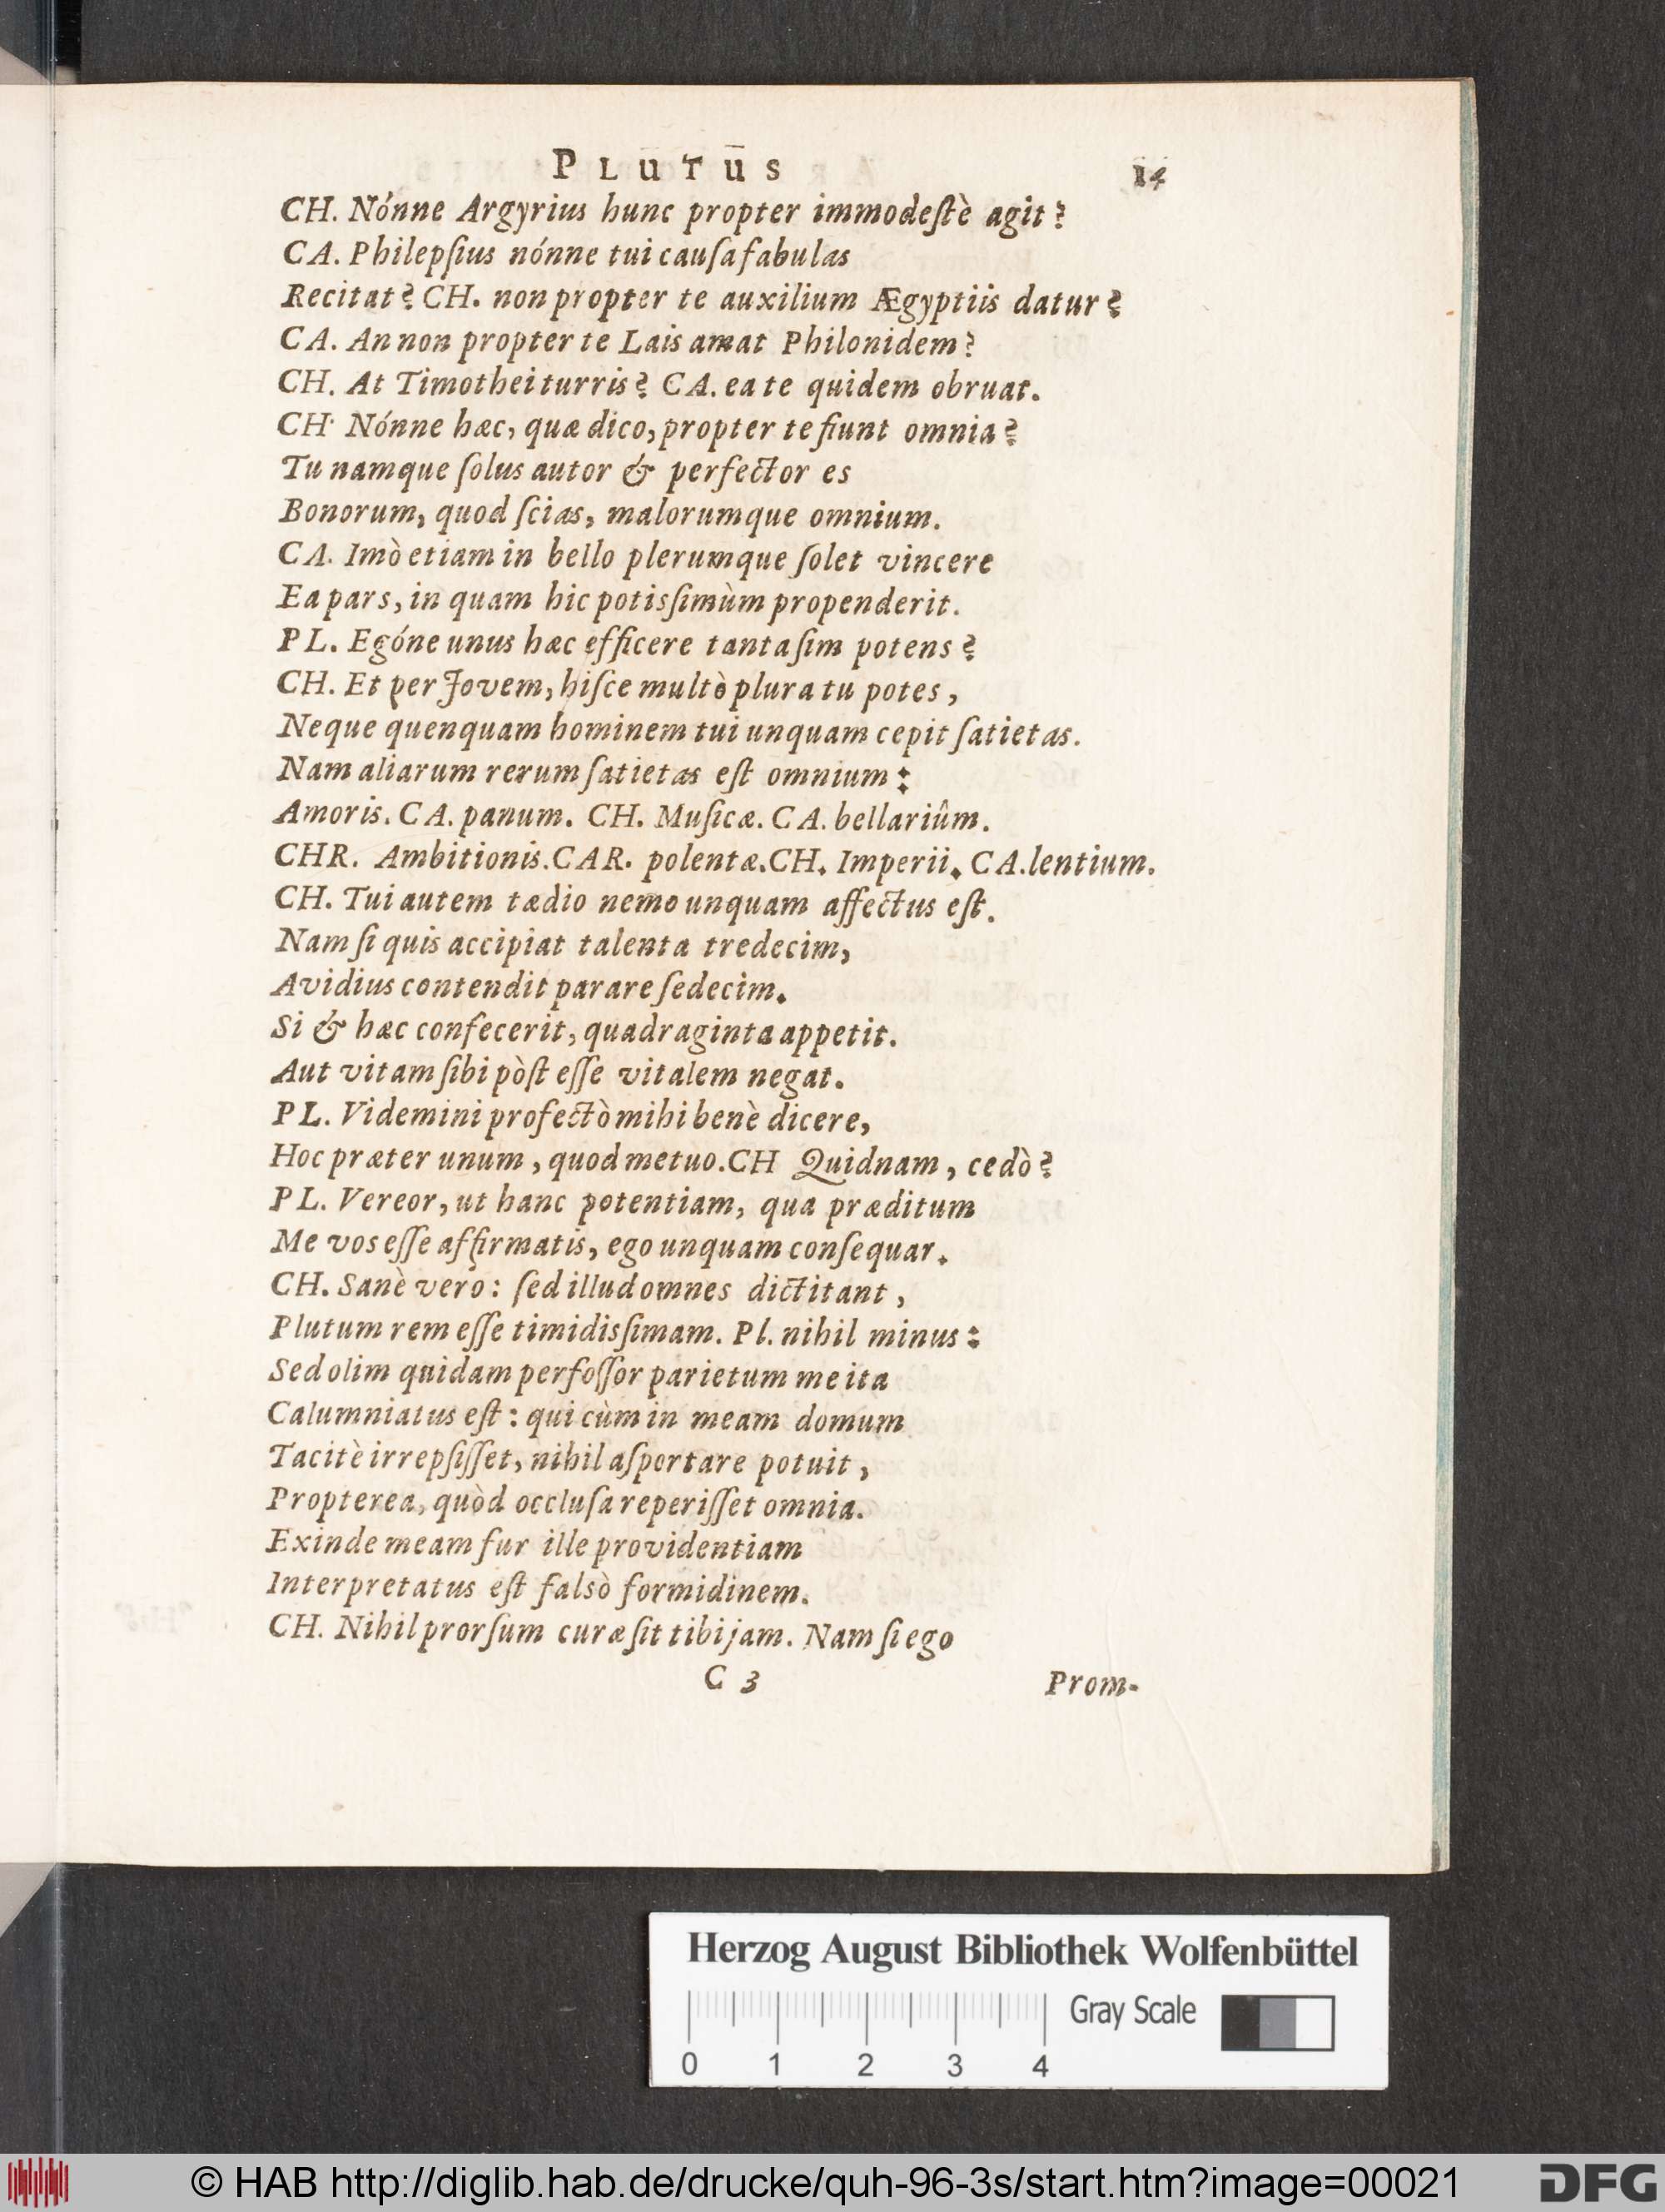 PLUTUS 14
CH. Nónne Argyrius hunc propter immodeſtè agit?
CA. Philepſius nónne tui cauſa fabulas
Recitat? CH. non propter te auxilium Ægyptiis datur?
CA. An non propter te Lais amat Philonidem?
CH. At Timothei turris? CA. ea te quidem obruat.
CH. Nónne hæc, quæ dico, propter te fiunt omnia?
Tu namque ſolus autor & perfector es
Bonorum, quod ſcias, malorumque omnium.
CA. Imò etiam in bello plerumque ſolet vincere
Ea pars, in quam hic potisſimùm propenderit.
PL. Egóne unus hæc efficere tanta ſim potens?
CH. Et per Jovem, hiſce multò plura tu potes,
Neque quenquam hominem tui unquam cepit ſatietas.
Nam aliarum rerum ſatietas eſt omnium:
Amoris. CA. panum. CH. Muſicæ. CA. bellariûm.
CHR. Ambitionis. CAR. polentæ. CH. Imperii. CA. lentium.
CH. Tui autem tædio nemo unquam affectus eſt.
Nam ſi quis accipiat talenta tredecim,
Avidius contendit parare ſedecim.
Si & hæc confecerit, quadraginta appetit.
Aut vitam ſibi pòſt eſſe vitalem negat.
PL. Videmini profectò mihi benè dicere,
Hoc præter unum, quod metuo. CH Quidnam, cedò?
PL. Vereor, ut hanc potentiam, qua præditum
Me vos eſſe affirmatis, ego unquam conſequar.
CH. Sanè vero: ſed illud omnes dictitant,
Plutum rem eſſe timidisſimam. Pl. nihil minus:
Sed olim quidam perfoſſor parietum me ita
Calumniatus eſt: qui cùm in meam domum
Tacitè irrepſiſſet, nihil aſportare potuit,
Propterea, quòd occluſa reperiſſet omnia.
Exinde meam fur ille providentiam
Interpretatus eſt falsò formidinem.
CH. Nihil prorſum curæ ſit tibi jam. Nam ſi ego
C 3 Prom-
Herzog August Bibliothek Wolfenbüttel
Gray Scale
0 1 2 3 4
© HAB http://diglib.hab.de/drucke/quh-96-3s/start.htm?image=00021
DFG